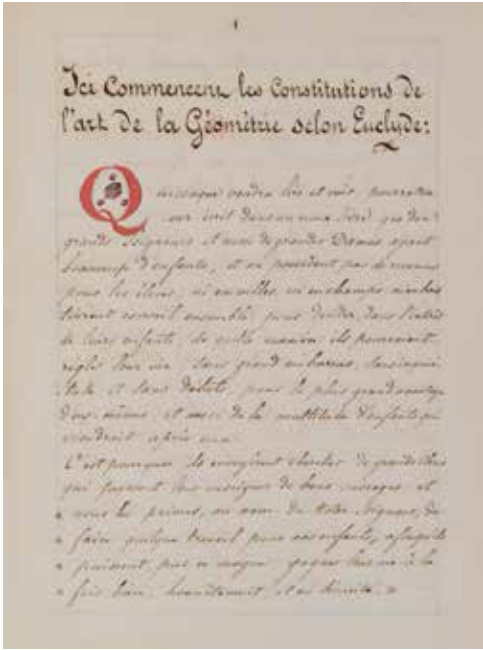 1
Ici Commencent les Constitutions de
l'art de la Géométrie selon Euclyde:
Quiconque voudra lire et voir, pourra trouver
écrit dans un vieux livre que de
grands Seigneurs et aussi de grandes Dames ayant
beaucoup d'enfants, et ne possédant pas de revenus
pour les élever, ni en villes, ni en champs,
tinrent conseil ensemble pour
de leurs enfants, de quelle manière ils pourraient
régler leur vie, sans grand embarras, sans
et sans pour le plus grand avantage
d'eux-mêmes, et aussi de la multitude d'enfants qui
viendrait après eux.
C'est pourquoi ils envoyèrent chercher de grands
qui pussent leur enseigner de bons et
« nous les prions, au nom de Notre Seigneur, de
« faire quelque travail pour nos enfants, afin qu'ils
« puissent, par ce moyen, gagner leur vie à la
« fois bien, honnêtement et en sécurité. »